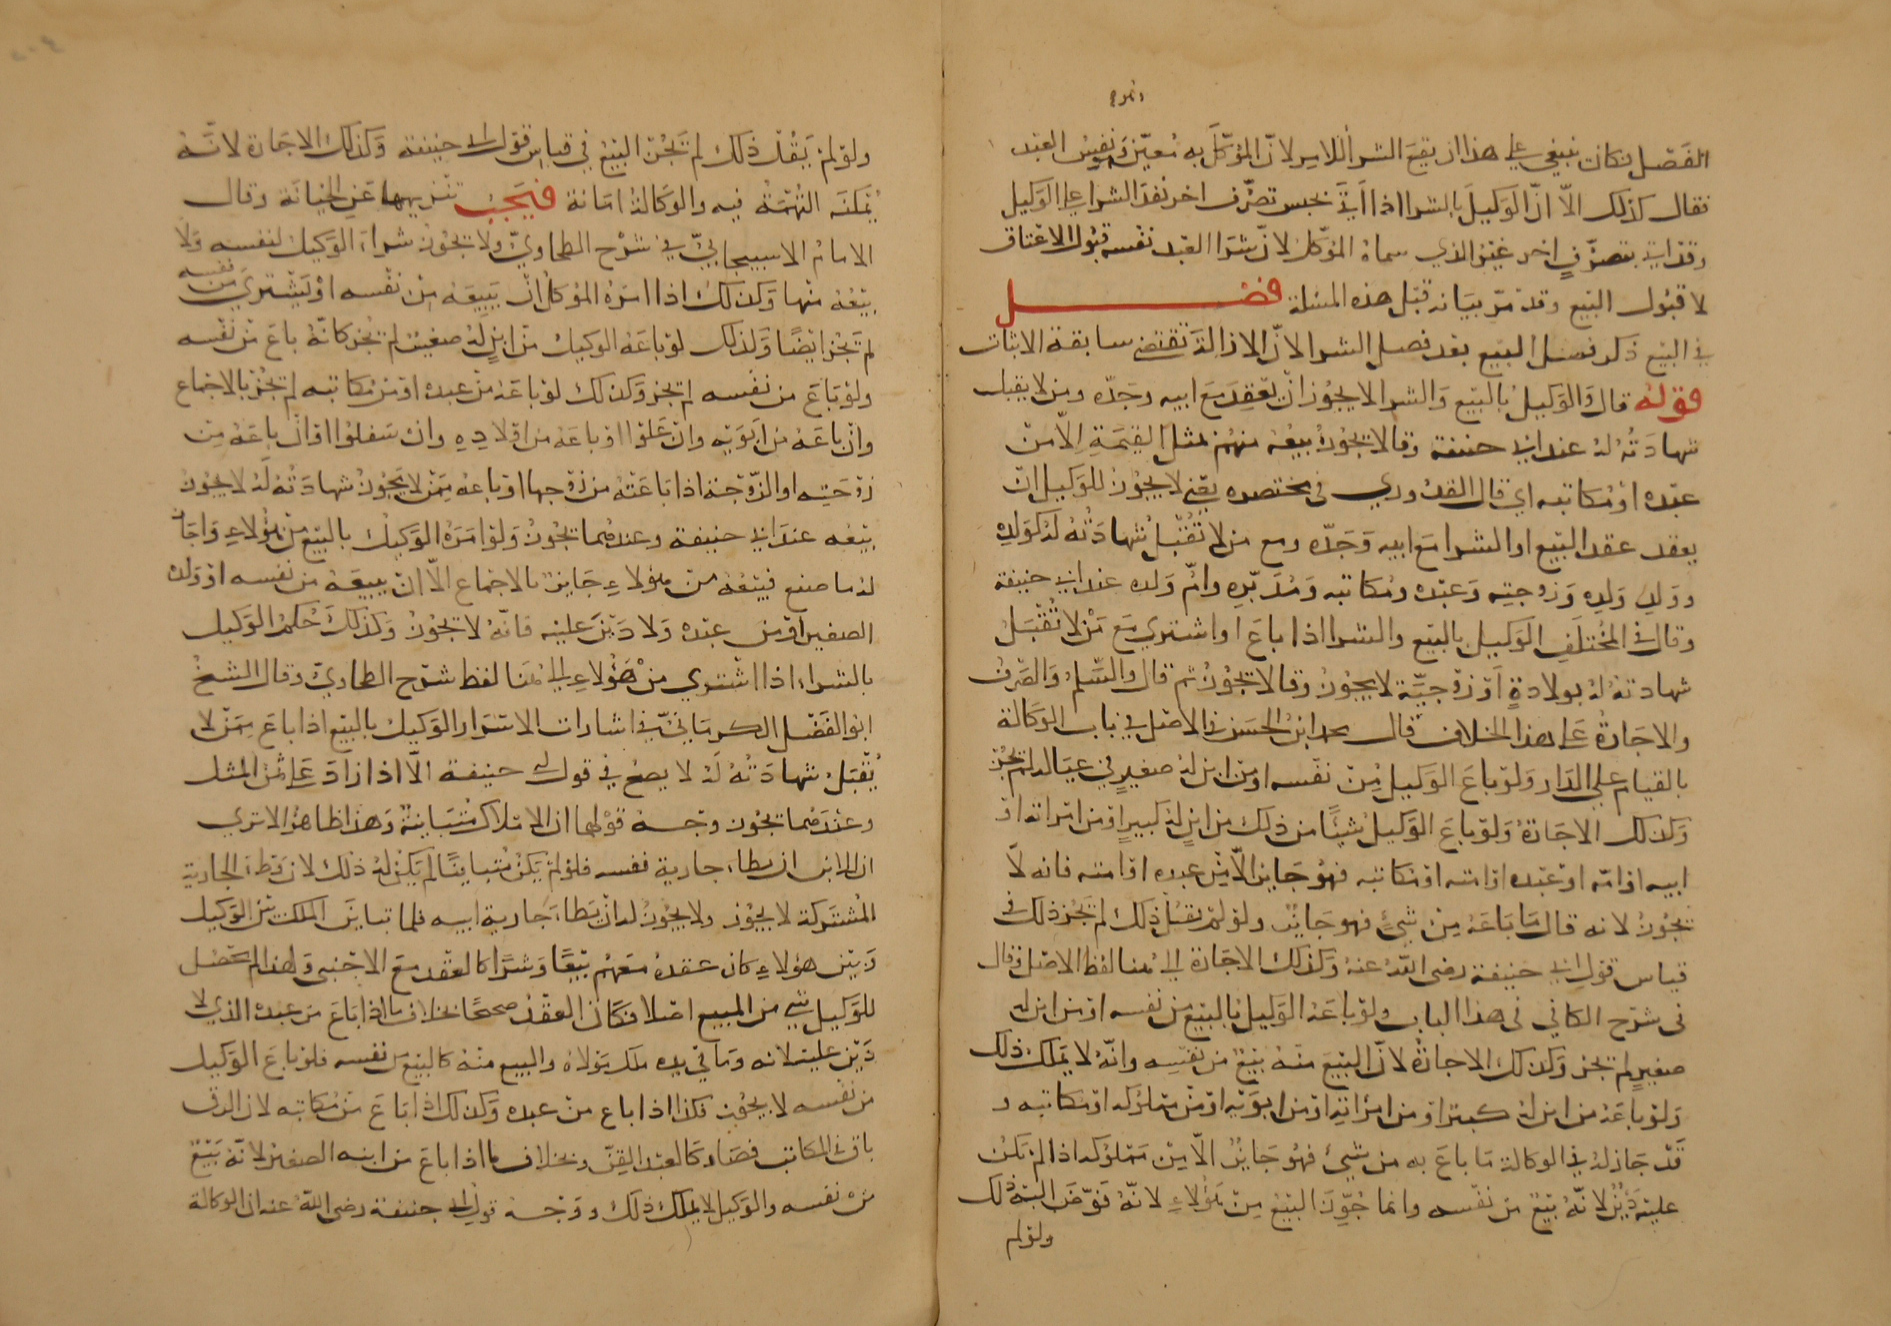 الفصل فكان ينبغي على هذا ان يقع الشرا للامر لان الموكل به معين وهو نفس العبد
فقال كذلك الا ان الوكيل بالشرا اذا اتى بجنس تصرف اخر نفذ الشرا على الوكيل
وقد اتى بتصرف اخر غير الذي سماه الموكل لان شرا العبد نفسه قبول الاعتاق
لا قبول البيع وقد مر بيانه قبل هذه المسئلة فصل
في البيع ذكر فصل البيع بعد فصل الشرا لان الازالة تقتضي سابقة الاثبات
قوله قال والوكيل بالبيع والشرا لا يجوز ان يعقد مع ابيه وجده ومن لا يقبل
شهادته له عند ابي حنيفة وقالا يجوز بيعه منهم بمثل القيمة الا من
عبده او مكاتبه اي قال القدوري في مختصره يعني لا يجوز للوكيل ان
يعقد عقد البيع او الشرا مع ابيه وجده ومع من لا تقبل شهادته له كولده
وولد ولده وزوجته وعبده ومكاتبه ومدبره وام ولده عند ابي حنيفة
وقال في المختلف الوكيل بالبيع والشرا اذا باع او اشترى مع من لا تقبل
شهادته له بولادة او زوجية لا يجوز وقالا يجوز ثم قال والسلم والصرف
والاجارة على هذا الخلاف قال محمد ابن الحسن في الاصل في باب الوكالة
بالقيام على الدار ولو باع الوكيل من نفسه او من ابن له صغير في عياله لم يجز
وكذلك الاجارة ولو باع الوكيل شيئا من ذلك من ابن له كبير او من امراته او
ابيه او امه او عبده او امته او مكاتبه فهو جايز الا من عبده او امته فانه لا
يجوز لانه قال ما باعه من شيء فهو جايز ولو لم يقل ذلك لم يجز ذلك في
قياس قول ابي حنيفة رضى الله عنه وكذلك الاجارة الى هنا لفظ الاصل وقال
في شرح الكافي في هذا الباب ولو باعه الوكيل بالبيع من نفسه او من ابن له
صغير لم تجز وكذلك الاجارة لان البيع منه بيع من نفسه وانه لا يملك ذلك
ولو باعه من ابن له كبير او من امراته او من ابويه او من مملوكه او مكاتبه و
قد جاز له في الوكالة ما باع به من شيء فهو جايز الا من مملوكه اذا لم يكن
عليه دين لانه بيع من نفسه وانما جوز البيع من هؤلاء لانه فوض اليه ذلك
ولو لم
ولو لم يقل ذلك لم تجز البيع في قياس قول ابي حنيفة وكذلك الاجارة لانه
يمكنه التهمة فيه والوكالة امانة فيجب تنزيهها عن الخيانة وقال
الامام الاسبيجابي في شرح الطحاوي ولا يجوز شراء الوكيل لنفسه ولا
بيعه منها وكذلك اذا امره الموكل ان يبيعه من نفسه او يشتري من نفسه
لم تجز ايضا وكذلك لو باعه الوكيل من ابن له صغير لم تجز كانه باع من نفسه
ولو باع من نفسه لم يجز وكذلك لو باعه من عبده او من مكاتبه لم تجز بالاجماع
وان باعه من ابويه وان علوا او باعه من اولاده وان سفلوا او ان باعه من
زوجته او الزوجة اذا باعته من زوجها او باعه ممن لا يجوز شهادته له لا يجوز
بيعه عند ابي حنيفة وعندهما تجوز ولو امره الوكيل بالبيع من هؤلاء واجاز
له ما صنع فبيعه من هؤلاء جايز بالاجماع الا ان يبيعه من نفسه او ولده
الصغير او من عبده ولا دين عليه فانه لا يجوز وكذلك حكم الوكيل
بالشراء اذا اشترى من هؤلاء الى هنا لفظ شرح الطحاوي وقال الشيخ
ابو الفضل الكرماني في اشارات الاسرار الوكيل بالبيع اذا باع ممن لا
يقبل شهادته له لا يصح في قول ابي حنيفة الا اذا زاد على ثمن المثل
وعندهما يجوز وجه قولهما ان الاملاك متباينة وهذا ظاهر الا ترى
ان للابن ان يطاء جارية نفسه فلو لم يكن متباينا لم يكن له ذلك لان وطء الجارية
المشتركة لا يجوز ولا يجوز له ان يطاء جارية ابيه فلما تباين الملك بين الوكيل
وبين هؤلاء كان عقده معهم بيعا وشرا كالعقد مع الاجنبي ولهذا لم يحصل
للوكيل شي من المبيع اصلا فكان العقد صحيحا بخلاف ما اذا باع من عبده الذي لا
دين عليه لانه وما في يده ملك مولاه والبيع منه كالبيع من نفسه فلو باع الوكيل
من نفسه لا يجوز فكذا اذا باع من عبده وكذلك اذا باع من مكاتبه لان الرق
باق في المكاتب فصار كالعبد القن وبخلاف ما اذا باع من ابنه الصغير لانه بيع
من نفسه والوكيل لا يملك ذلك ووجه قول ابي حنيفة رضى الله عنه ان الوكالة